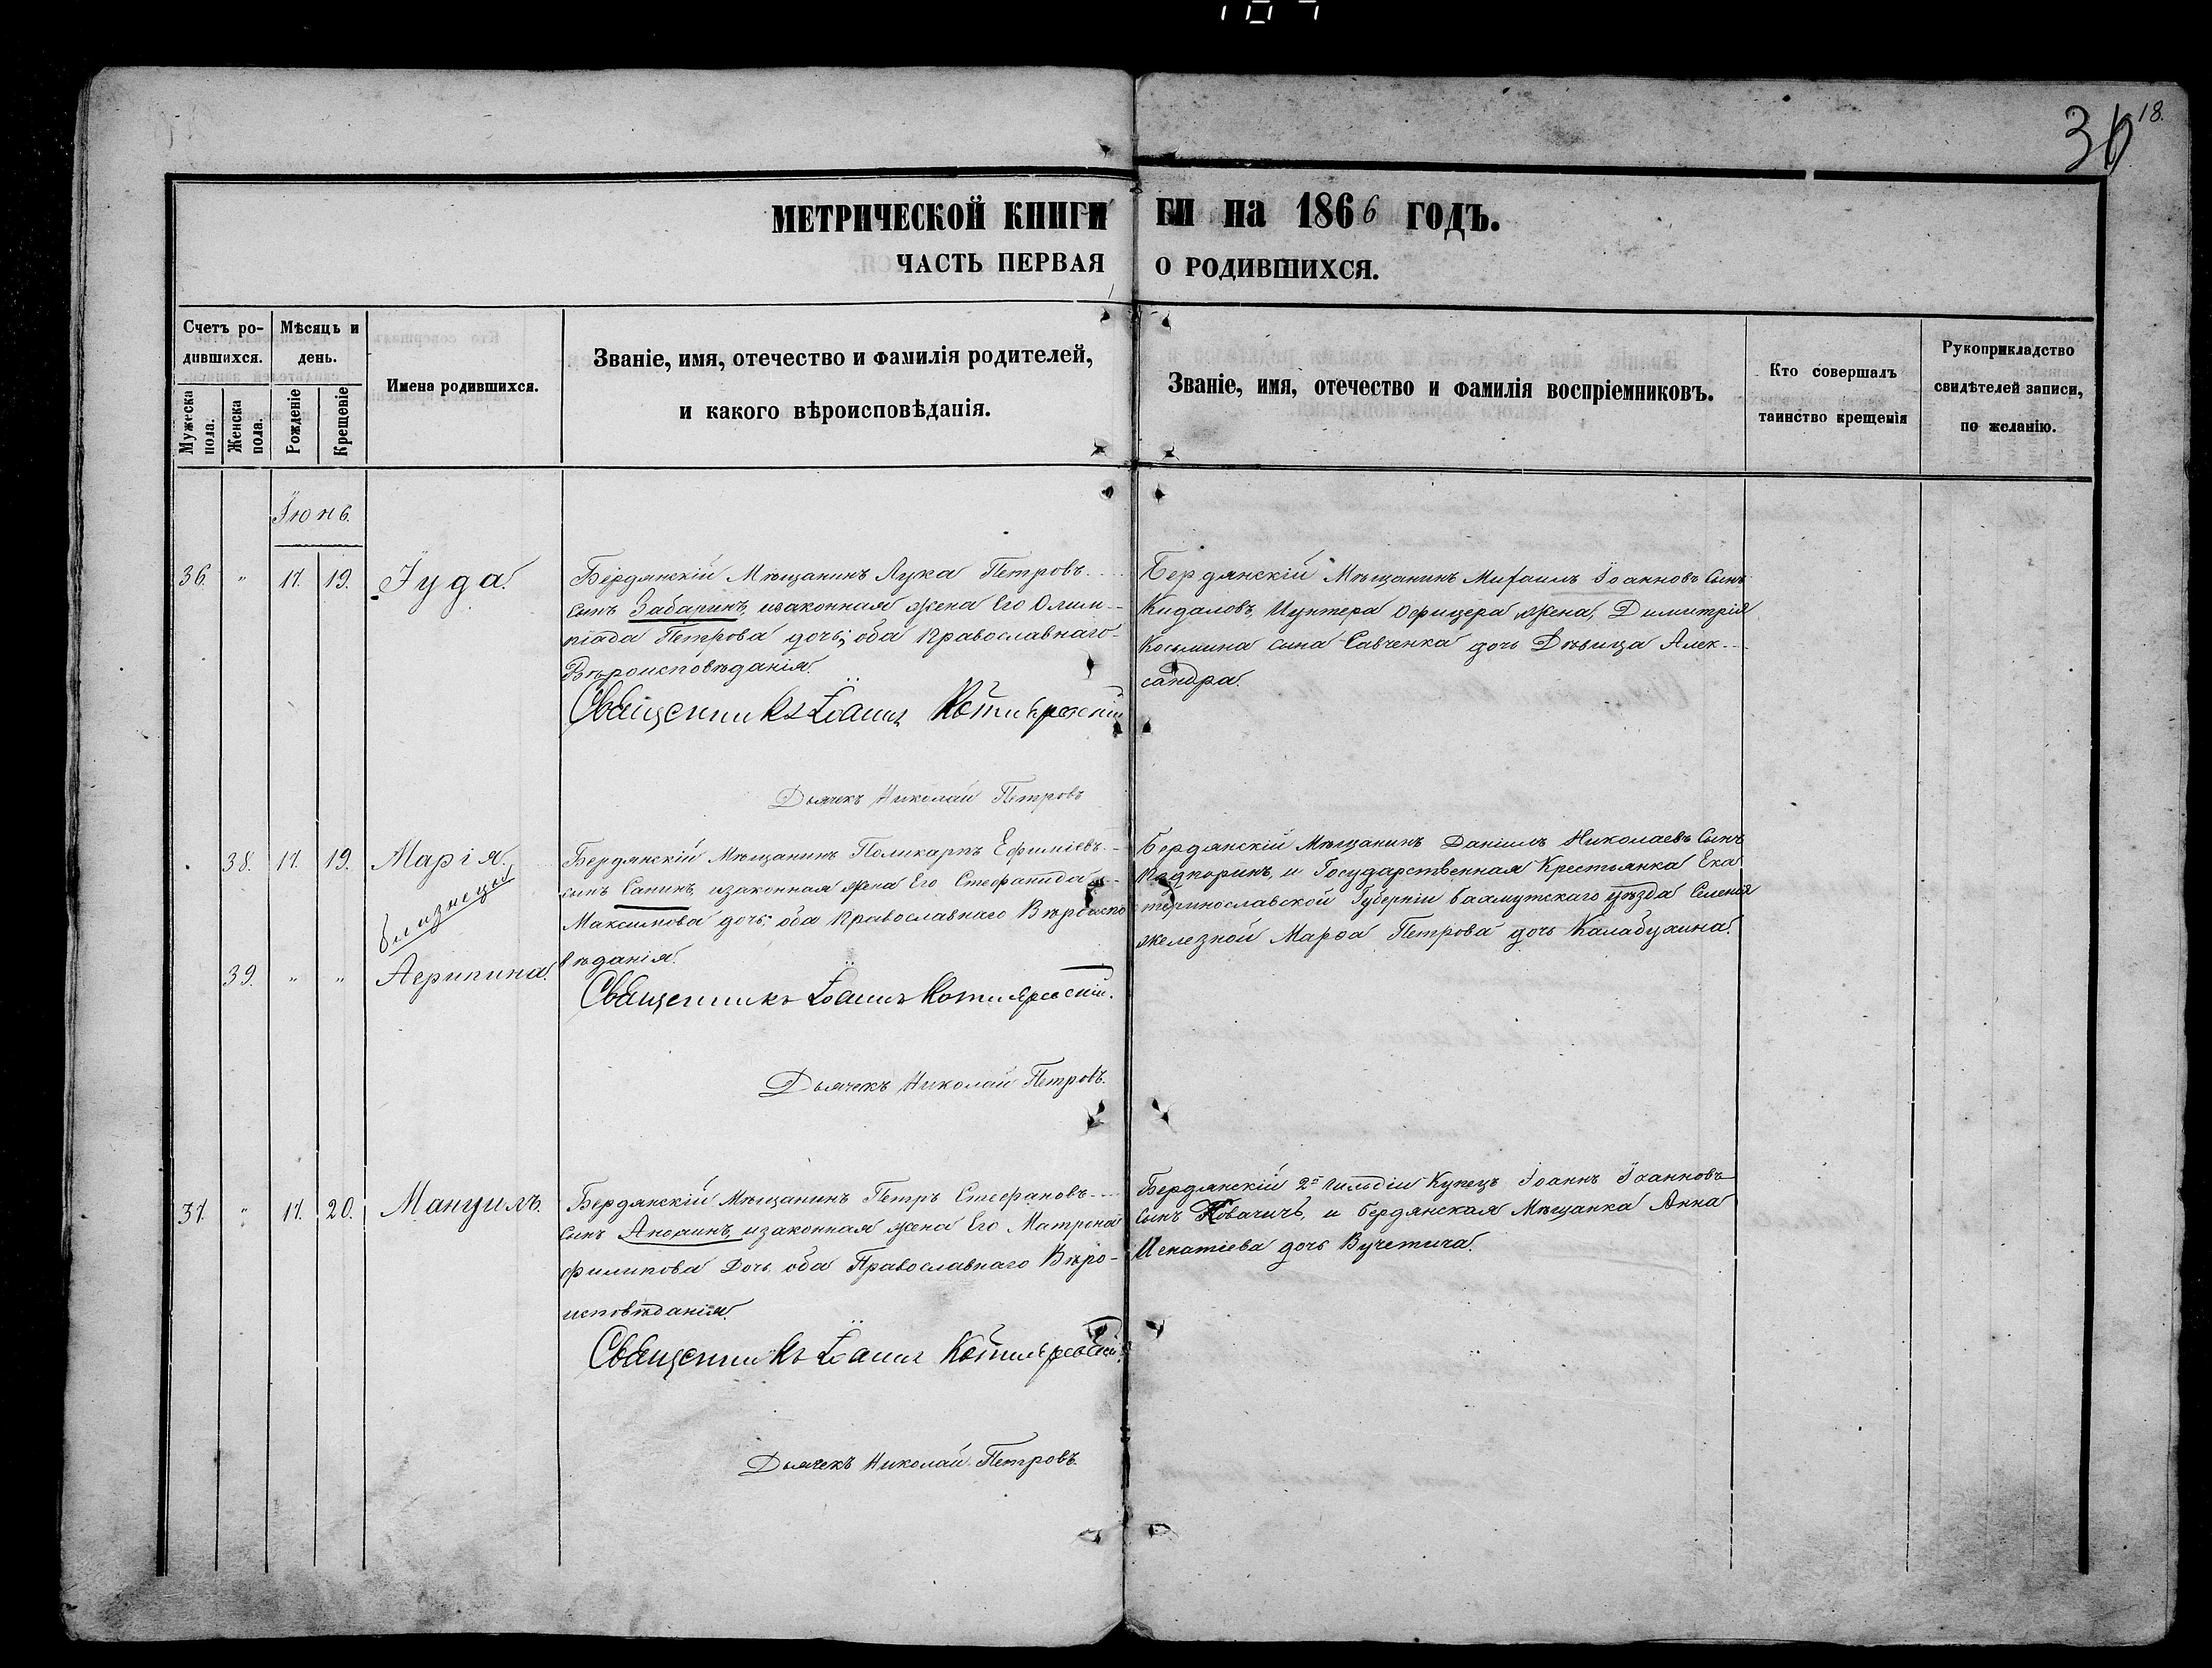 107
18.
36
МЕТРИЧЕСКОЙ КНИГИ
ГИ на 1866 ГОДЪ.
ЧАСТЬ ПЕРВАЯ
О РОДИВШИХСЯ.
Счетъ ро-
дившихся.
Мужеска пола.
Женска пола.
Мѣсяцъ и
день.
Рожденіе
Крещеніе
Имена родившихся.
Званіе, имя, отечество и фамилія родителей,
и какого вѣроисповѣданія.
Званіе, имя, отечество и фамилія воспріемниковъ.
Кто совершалъ
таинство крещенія
Рукоприкладство
свидѣтелей записи,
по желанію.
Іюнь.
36. " 17. 19. Іуда.
Бердянскій Мѣщанинъ Лука Петровъ
сынъ Забаринъ, изаконная жена Его Олим-
піада Петрова дочь; оба Православнаго
Вѣроисповѣданія.
Священникъ Іоаннъ Котляревскій
Дьячекъ Николай Петровъ
Бердянскій Мѣщанинъ Михаилъ Іоанновъ Сынъ
Кидаловъ, Иунтера Офицера жена, Димитрія
Косьмина сина Савченка дочь Дѣвица Алек-
сандра.
38. 17. 19. Марія.
близнецы
39. " " Агрипина.
Бердянскій Мѣщанинъ Поликарпъ Ефиміевъ
сынъ Санинъ, изаконная жена Его Стефанида
Максимова дочь; оба Православнаго Вѣроиспо
вѣданія.
Священникъ Іоаннъ Котляревскій.
Дьячекъ Николай Петровъ.
Бердянскій Мѣщанинъ Даніилъ Николаевъ Сынъ
Подпоринъ, и Государственная Крестьянка Ека
теринославской Губерніи Бахмутскаго уѣзда Селенія
железной Марѳа Петрова дочь Калабухина.
37. " 17. 20. Мануилъ.
Бердянскій Мѣщанинъ Петръ Стефановъ
сынъ изаконная жена Его Матрона
Филипова Дочь, оба Православнаго Вѣро-
исповѣданія.
Священникъ Іоаннъ Котляревскій
Дьячекъ Николай Петровъ.
Бердянскій 2й гильдіи Купецъ Іоаннъ Іоанновъ
сынъ Ковачичъ, и бердянская Мѣщанка Анна
Игнатіева дочь Вучетича.